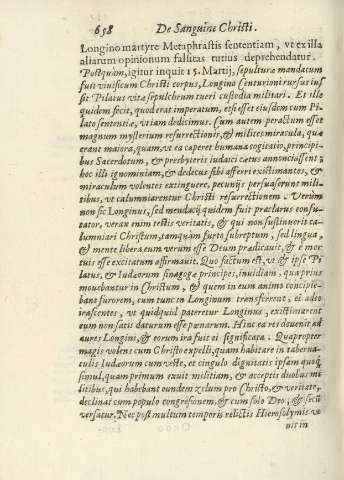 658 De Sanguine Christi.
Longino martyre Metaphrastis sententiam, vt ex illa
aliarum opinionum falsitas tutius deprehendatur.
Postquam, igitur inquit 15. Martij, sepulturæ mandatum
fuit viuificum Christi corpus, Longino Centurioni rursus ius
sit Pilatus vt a sepulchrum tueri custodia militari. Et illa
quidem fecit, quod erat imperatum, etsi esset eiusdem cum Pi
lato sententiæ, vt iam dedicimus. Cum autem peractum esset
magnum mysterium resurrectionis, & milites miracula, quæ
erant maiora, quam, vt ea caperet humana cogitatio, principi-
bus Sacerdotum, & presbyteris iudaici cætus annonciassent,
hoc illi ignominiam, & dedecus sibi afferri existimantes, &
miraculum volentes extinguere, pecunijs persuaserunt mili-
tibus, vt calumniarentur Christi resurrectionem. Verùm
non sic Longinus, sed mendacij quidem fuit præclarus confu-
tator, veræ enim testis veritatis, & qui non sustinuerit ca-
lumniari Christum, tamquam furto subreptum, sed lingua,
& mente libera eum verum esse Deum prædicauit, & è mor
tuis esse excitatum affirmauit. Quo factum est, vt & ipse Pi
latus, & Iudæorum sinagogæ principes, inuidiam, qua prius
mouebantur in Christum, & quem in eum animo concipie-
bant furorem, cum tunc in Longinum transferrent, ei adeo
irascentes, vt quidquid pateretur Longinus, existimarent
eum non satis daturum esse pœnarum. Hinc ea res deuenit ad
aures Longini, & eorum ira fuit ei significata. Quapropter
magis volens cum Christo expelli, quam habitare in taberna-
culis Iudæorum cum veste, et cingulo dignitatis ipsam quoq;
simul, quamprimum exuit militiam, & acceptis duobus mi
litibus, qui habebant eundem zelum pro Christo, & veritate,
declinat cum populo congressionem, & cum solo Deo, & secū
versatur. Nec post multum temporis relictis Hierosolymis ve
nit in